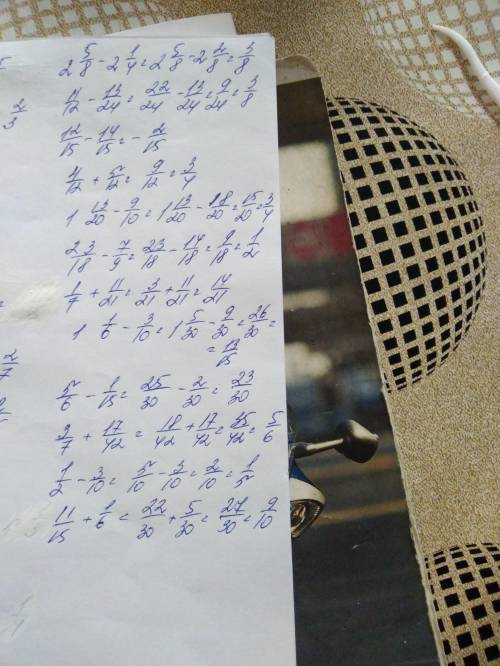 2 5/8 - 2 1/4 = 2 5/8 - 2 2/8 = 3/8
11/12 - 13/24 = 22/24 - 13/24 = 9/24 = 3/8
12/15 - 14/15 = - 2/15
4/12 + 5/12 = 9/12 = 3/4
1 13/20 - 9/10 = 1 13/20 - 18/20 = 15/20 = 3/4
23/18 - 7/9 = 23/18 - 14/18 = 9/18 = 1/2
1/7 + 11/21 = 3/21 + 11/21 = 14/21
1 1/6 - 3/10 = 1 5/30 - 9/30 = 26/30 =
= 13/15
5/6 - 1/15 = 25/30 - 2/30 = 23/30
3/7 + 17/42 = 18/42 + 17/42 = 35/42 = 5/6
1/2 - 3/10 = 5/10 - 3/10 = 2/10 = 1/5
11/15 + 1/6 = 22/30 + 5/30 = 27/30 = 9/10
2/3
2/7